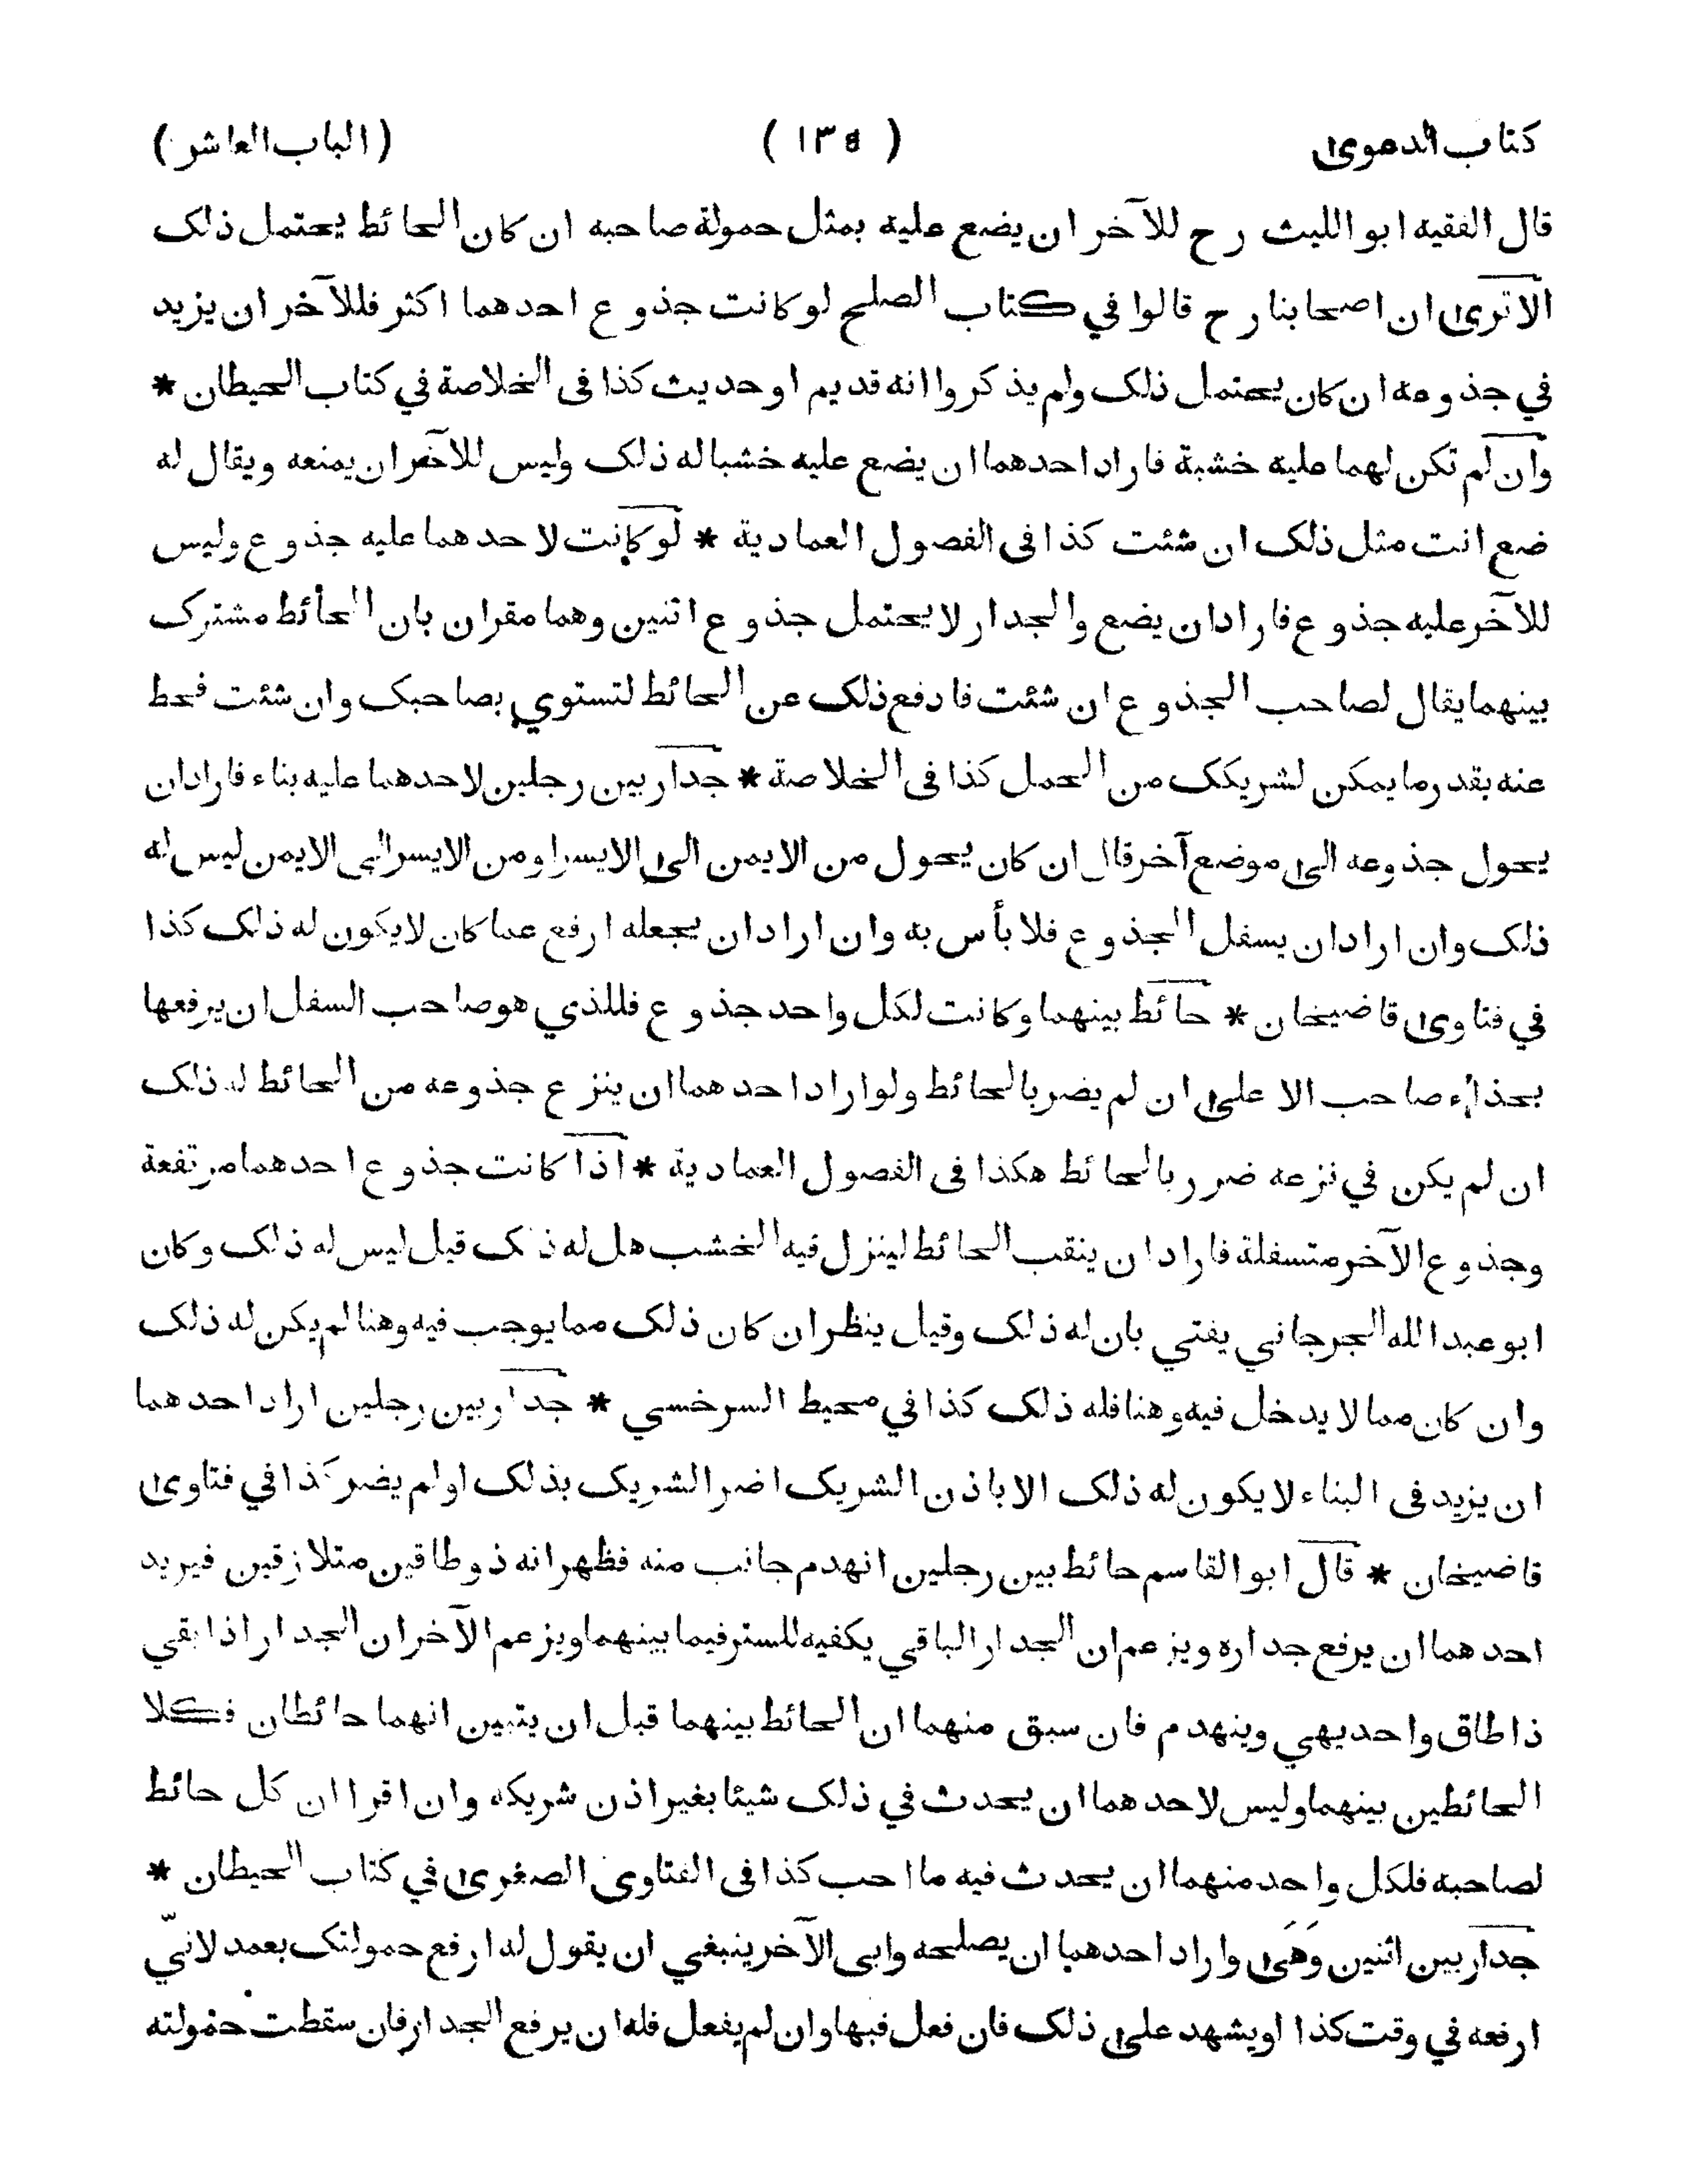 كتاب الدعوى ( ١٣٥ ) (الباب العاشر)
قال الفقيه ابو الليث رح للآخر ان يضع عليه بمثل حمولة صاحبه ان كان الحائط يحتمل ذلك
الا ترى ان اصحابنا رح قالوا في كتاب الصلح لو كانت جذوع احدهما اكثر فللآخر ان يزيد
في جذوعه ان كان يحتمل ذلك ولم يذكروا انه قديم او حديث كذا فى الخلاصة في كتاب الحيطان *
وان لم تكن لهما عليه خشبة فاراد احدهما ان يضع عليه خشبا له ذلك وليس للآخر ان يمنعه ويقال له
ضع انت مثل ذلك ان شئت كذا فى الفصول العمادية * لو كانت لاحدهما عليه جذوع وليس
للآخر عليه جذوع فاراد ان يضع والجدار لا يحتمل جذوع اثنين وهما مقران بان الحائط مشترك
بينهما يقال لصاحب الجذوع ان شئت فادفع ذلك عن الحائط لتستوي بصاحبك وان شئت فحط
عنه بقدر ما يمكن لشريكك من الحمل كذا فى الخلاصة * جدار بين رجلين لاحدهما عليه بناء فاراد ان
يحول جذوعه الى موضع آخر قال ان كان يحول من الايمن الى الايسر او من الايسر الى الايمن ليس له
ذلك وان اراد ان يسفل الجذوع فلا بأس به وان اراد ان يجعله ارفع عما كان لا يكون له ذلك كذا
في فتاوى قاضيخان * حائط بينهما وكانت لكل واحد جذوع فللذي هو صاحب السفل ان يرفعها
بحذاء صاحب الاعلى ان لم يضر بالحائط ولو اراد احدهما ان ينزع جذوعه من الحائط له ذلك
ان لم يكن في نزعه ضرر بالحائط هكذا فى الفصول العمادية * اذا كانت جذوع احدهما مرتفعة
وجذوع الآخر متسفلة فاراد ان ينقب الحائط لينزل فيه الخشب هل له ذلك قيل ليس له ذلك وكان
ابو عبد الله الجرجاني يفتي بان له ذلك وقيل ينظر ان كان ذلك مما يوجب فيه وهنا لم يكن له ذلك
وان كان مما لا يدخل فيه وهنا فله ذلك كذا في محيط السرخسي * جدار بين رجلين اراد احدهما
ان يزيد فى البناء لا يكون له ذلك الا باذن الشريك اضر الشريك بذلك او لم يضر كذا في فتاوى
قاضيخان * قال ابو القاسم حائط بين رجلين انهدم جانب منه فظهر انه ذو طاقين متلازقين فيريد
احدهما ان يرفع جداره ويزعم ان الجدار الباقي يكفيه للستر فيما بينهما ويزعم الآخر ان الجدار اذا بقي
ذا طاق واحد يهي وينهدم فان سبق منهما ان الحائط بينهما قبل ان يتبين انهما حائطان فكلا
الحائطين بينهما وليس لاحدهما ان يحدث في ذلك شيئا بغير اذن شريكه وان اقرا ان كل حائط
لصاحبه فلكل واحد منهما ان يحدث فيه ما احب كذا فى الفتاوى الصغرى في كتاب الحيطان *
جدار بين اثنين وَهَى واراد احدهما ان يصلحه وابى الآخر ينبغي ان يقول له ارفع حمولتك بعمد لانّي
ارفعه في وقت كذا او يشهد على ذلك فان فعل فبها وان لم يفعل فله ان يرفع الجدار فان سقطت حمولته